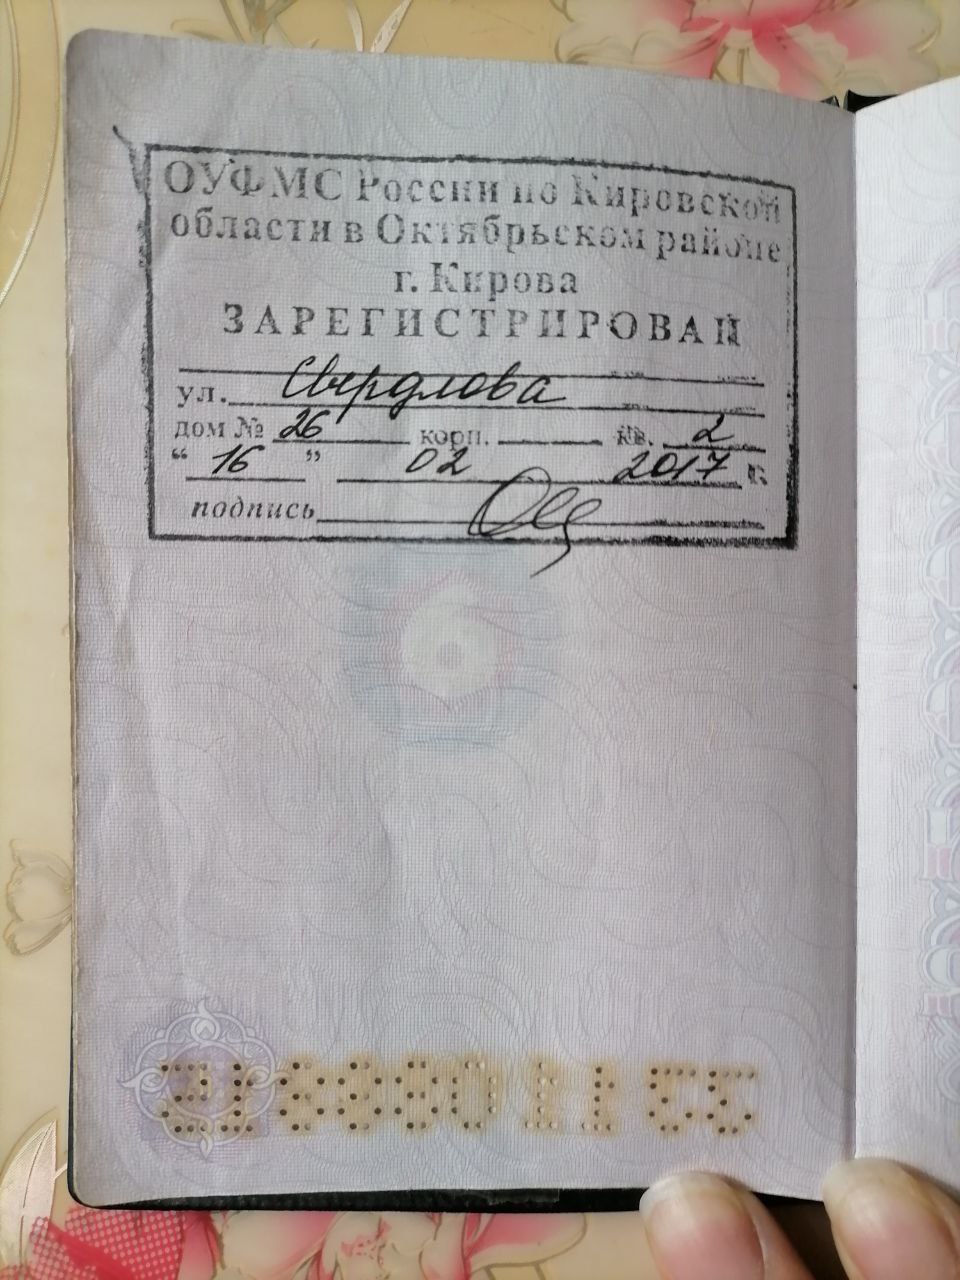 ОУФМС России по Кировской
области в Октябрьском районе
г. Кирова
ЗАРЕГИСТРИРОВАН
ул. Свердлова
дом № 26 корп. кв. 2
“ 16 ” 02 2017 г.
подпись